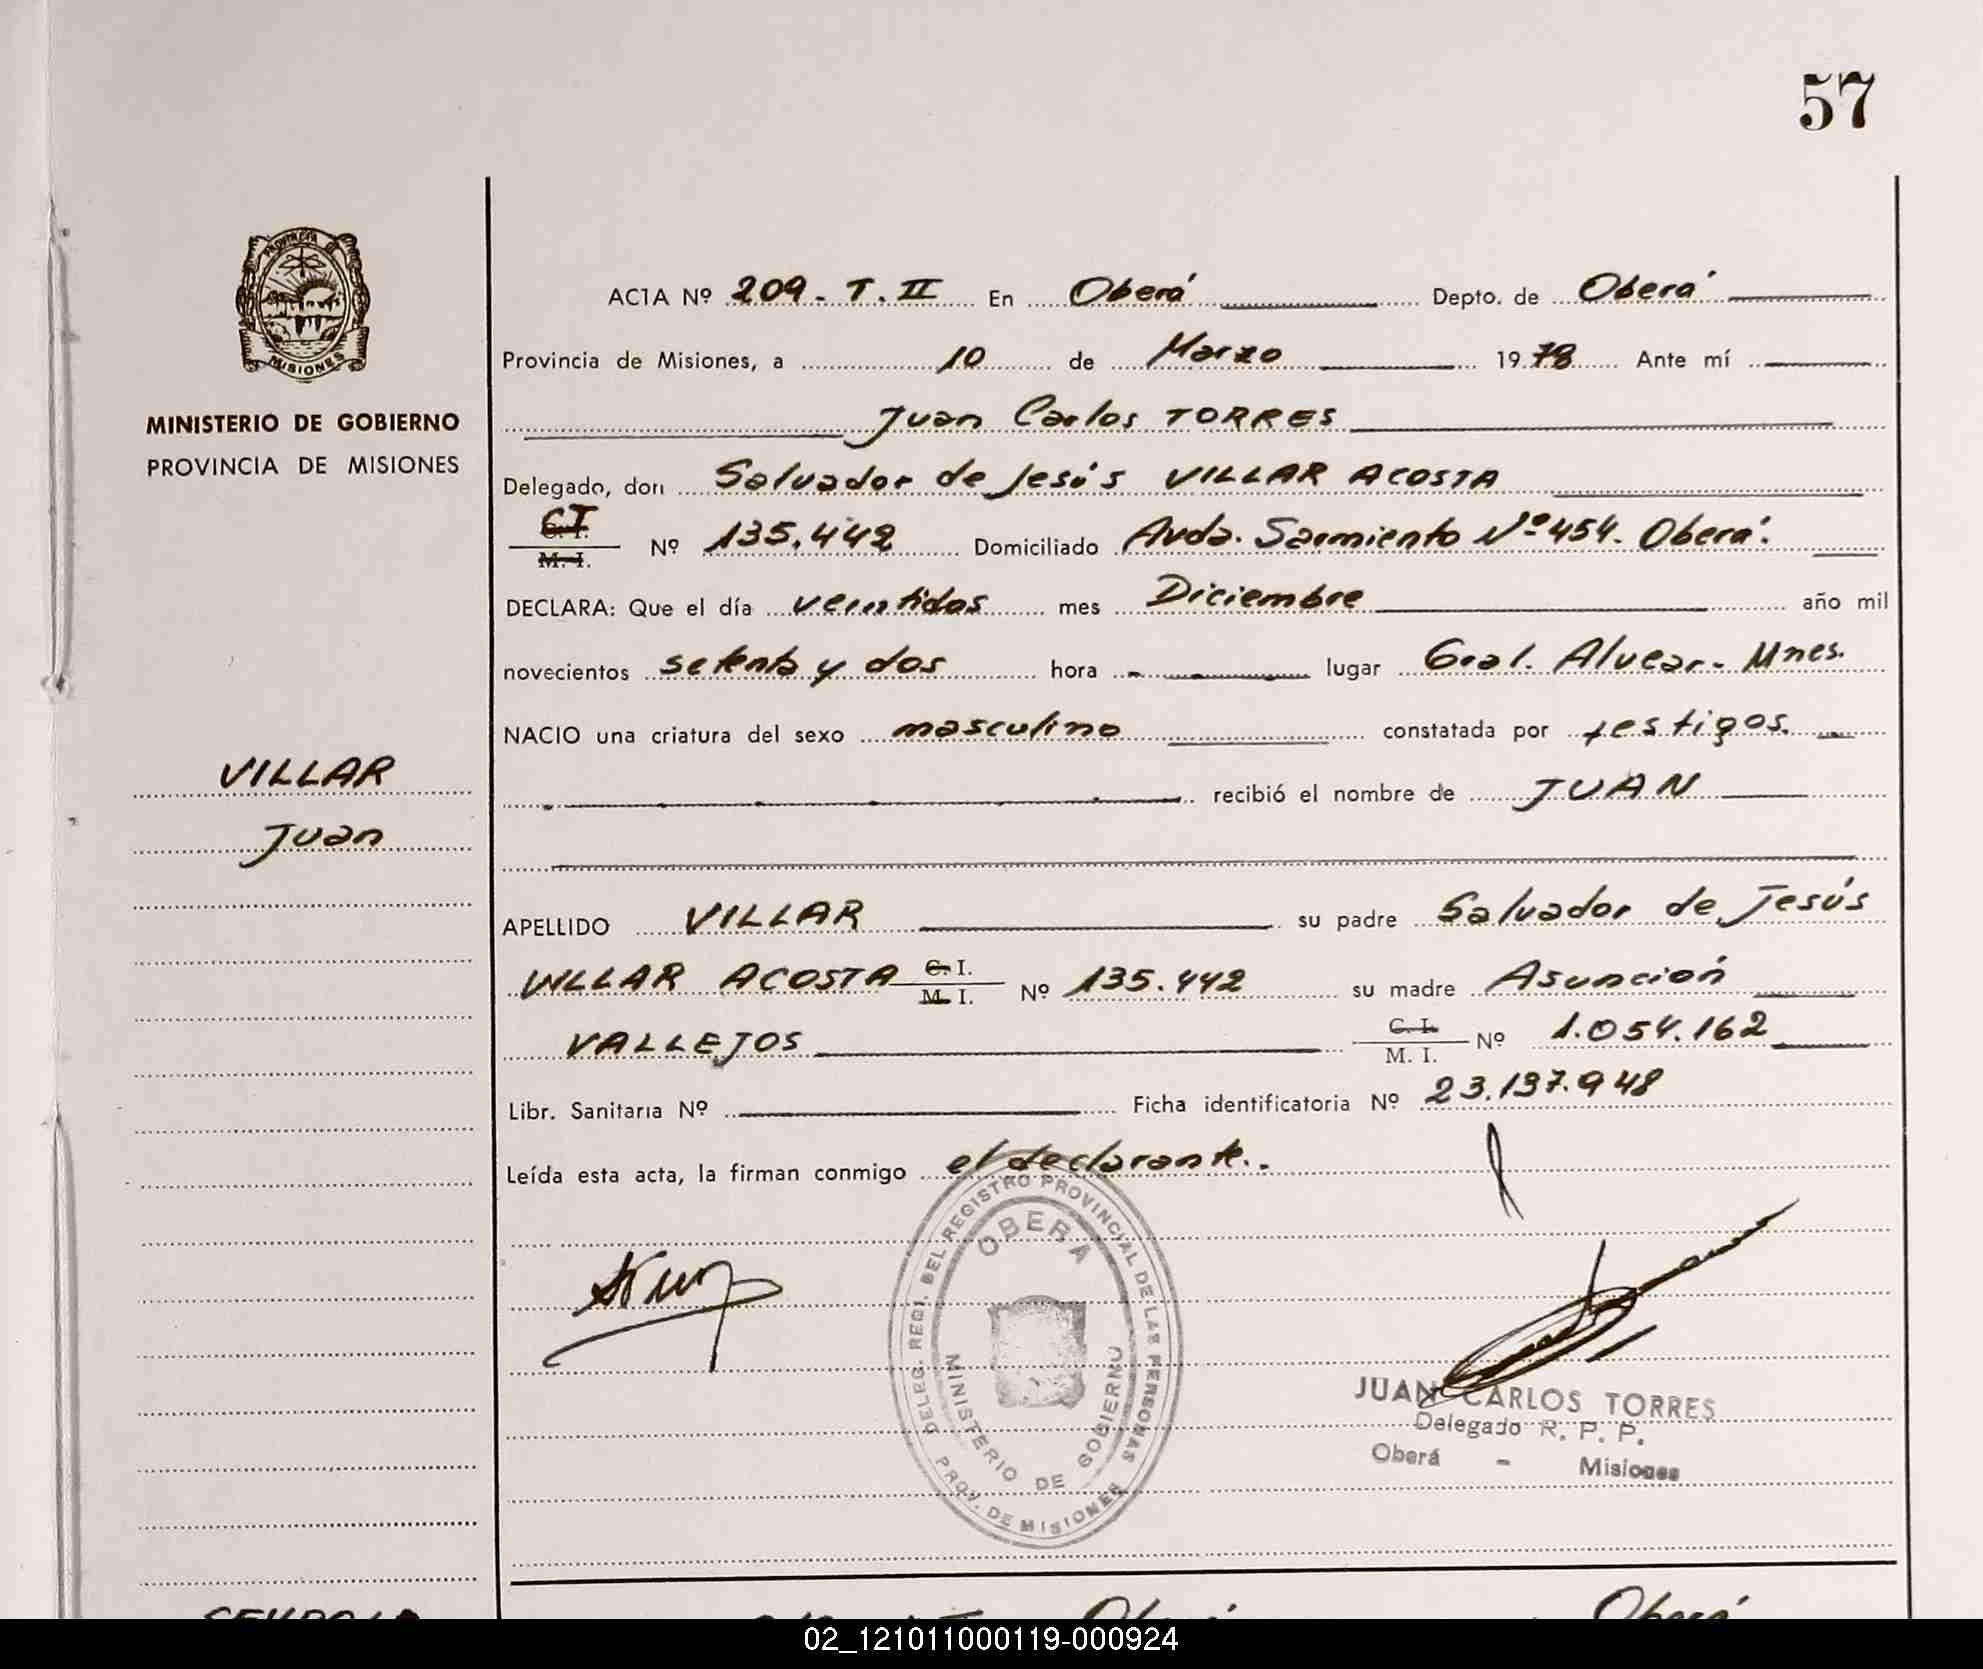 57
PROVINCIA
MISIONES
MINISTERIO DE GOBIERNO
PROVINCIA DE MISIONES
VILLAR
Juan
ACTA Nº 209 - T. II En Oberá Depto. de Oberá
Provincia de Misiones, a 10 de Marzo 1978 Ante mí
Juan Carlos TORRES
Delegado, don Salvador de Jesús VILLAR ACOSTA
C. I.
M. I. Nº 135.442 Domiciliado Avda. Sarmiento Nº 454. Oberá.
DECLARA: Que el día veintidos mes Diciembre año mil
novecientos setenta y dos hora lugar Gral. Alvear - Mnes.
NACIO una criatura del sexo masculino constatada por testigos.
recibió el nombre de JUAN
APELLIDO VILLAR su padre Salvador de Jesús
VILLAR ACOSTA C. I. M. I. Nº 135.442 su madre Asunción
VALLEJOS C. I. M. I. Nº 1.054.162
Libr. Sanitaria Nº Ficha identificatoria Nº 23.137.948
Leída esta acta, la firman conmigo el declarante.
DELEG. REGT. DEL REGISTRO PROVINCIAL DE LAS PERSONAS
OBERA
MINISTERIO DE GOBIERNO
PROV. DE MISIONES
JUAN CARLOS TORRES
Delegado R. P. P.
Oberá - Misiones
Oberá
02_121011000119-000924